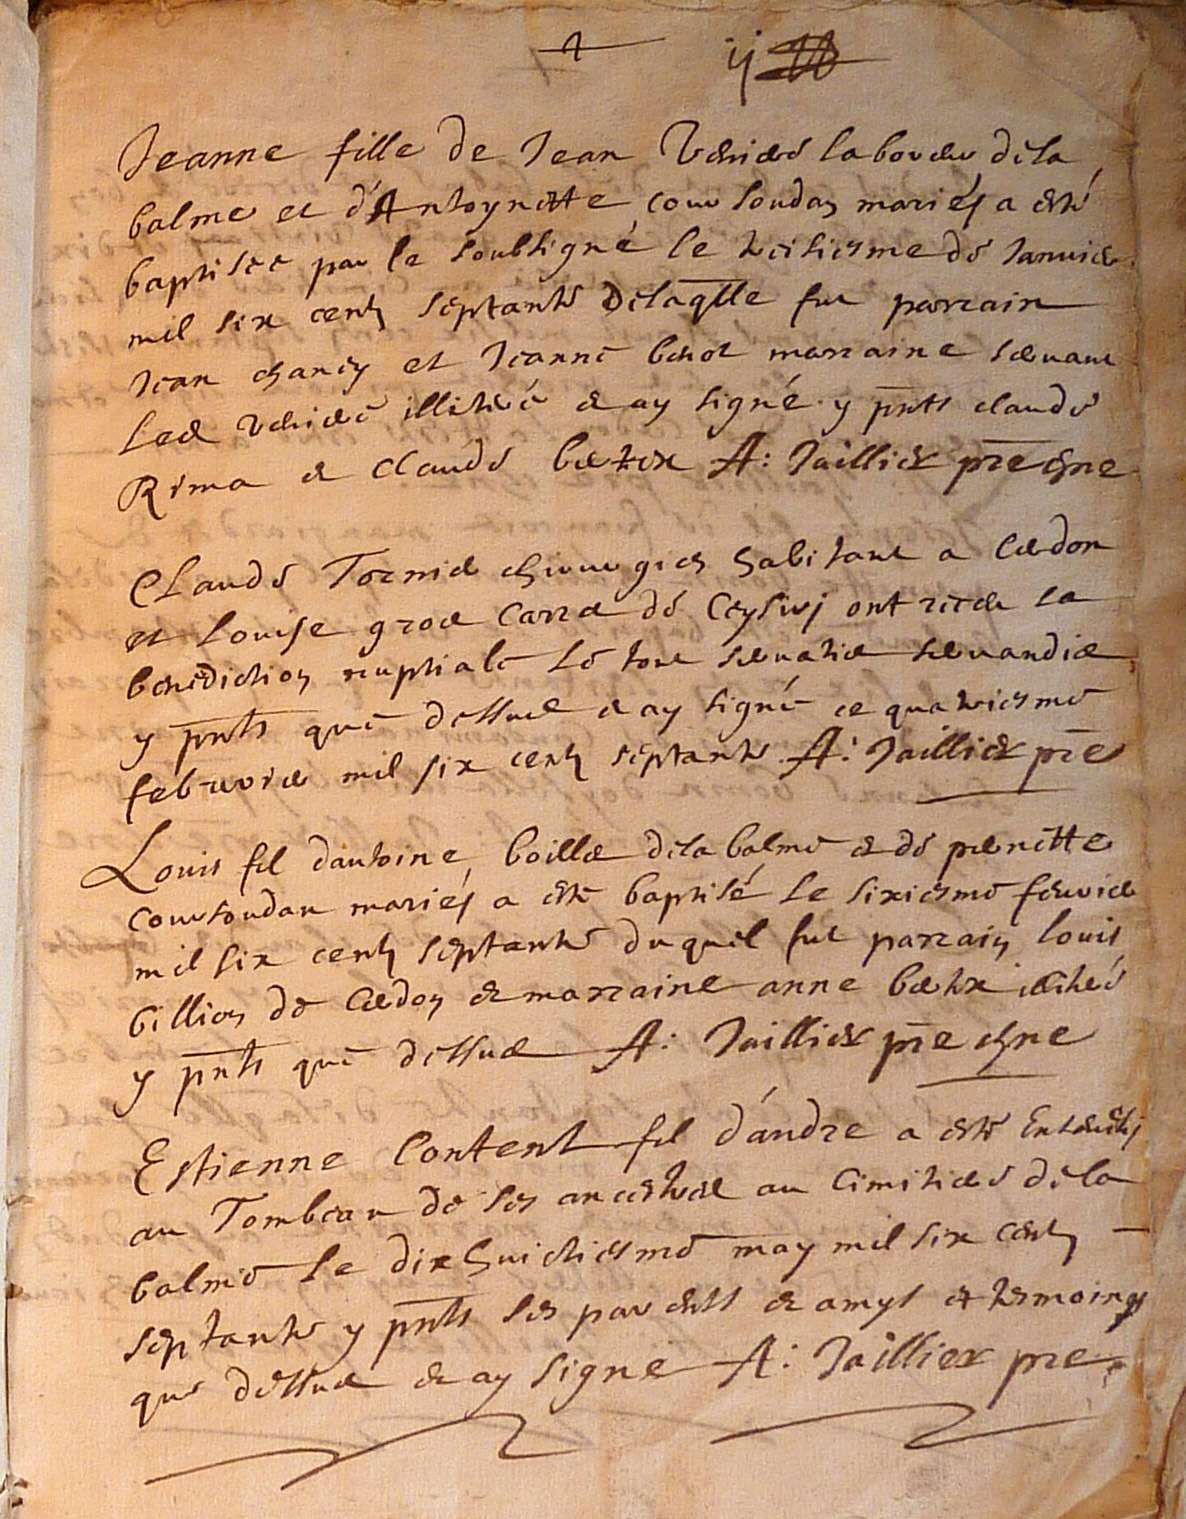 Jeanne fille de Jean laboureur dela
balme et d'Antoynette coursoudan mariés a esté
baptisee par le soubsigné le troisiesme de Januier
mil six cents septante Delaqlle fut parrain
Jean chancy et Jeanne marraine
Led illitere & ay signé y pnts claude
Rima & Claude A: Taillier pre
Claude Tornier chirurgien habitant a Cerdon
et Louise de ont la
benediction nuptiale
y pnts que dessus & ay signé ce quatriesme
februrier mil six cents septante A: Taillier pre
Louis fil dantoine dela balme & de pernette
coursoudan mariés a esté baptisé le sixiesme feurier
mil six cents septante duquel fut parrain Louis
billion de Cerdon & marraine anne
y pnts que dessus A: Taillier pre
Estienne Content fil d'andre a esté
au Tombeau de ses ancestres au Cimitiere dela
balme le dixhuictiesme may mil six cents
septante y pnts ses parents & amys et tesmoings
que dessus & ay signe A: Taillier pre